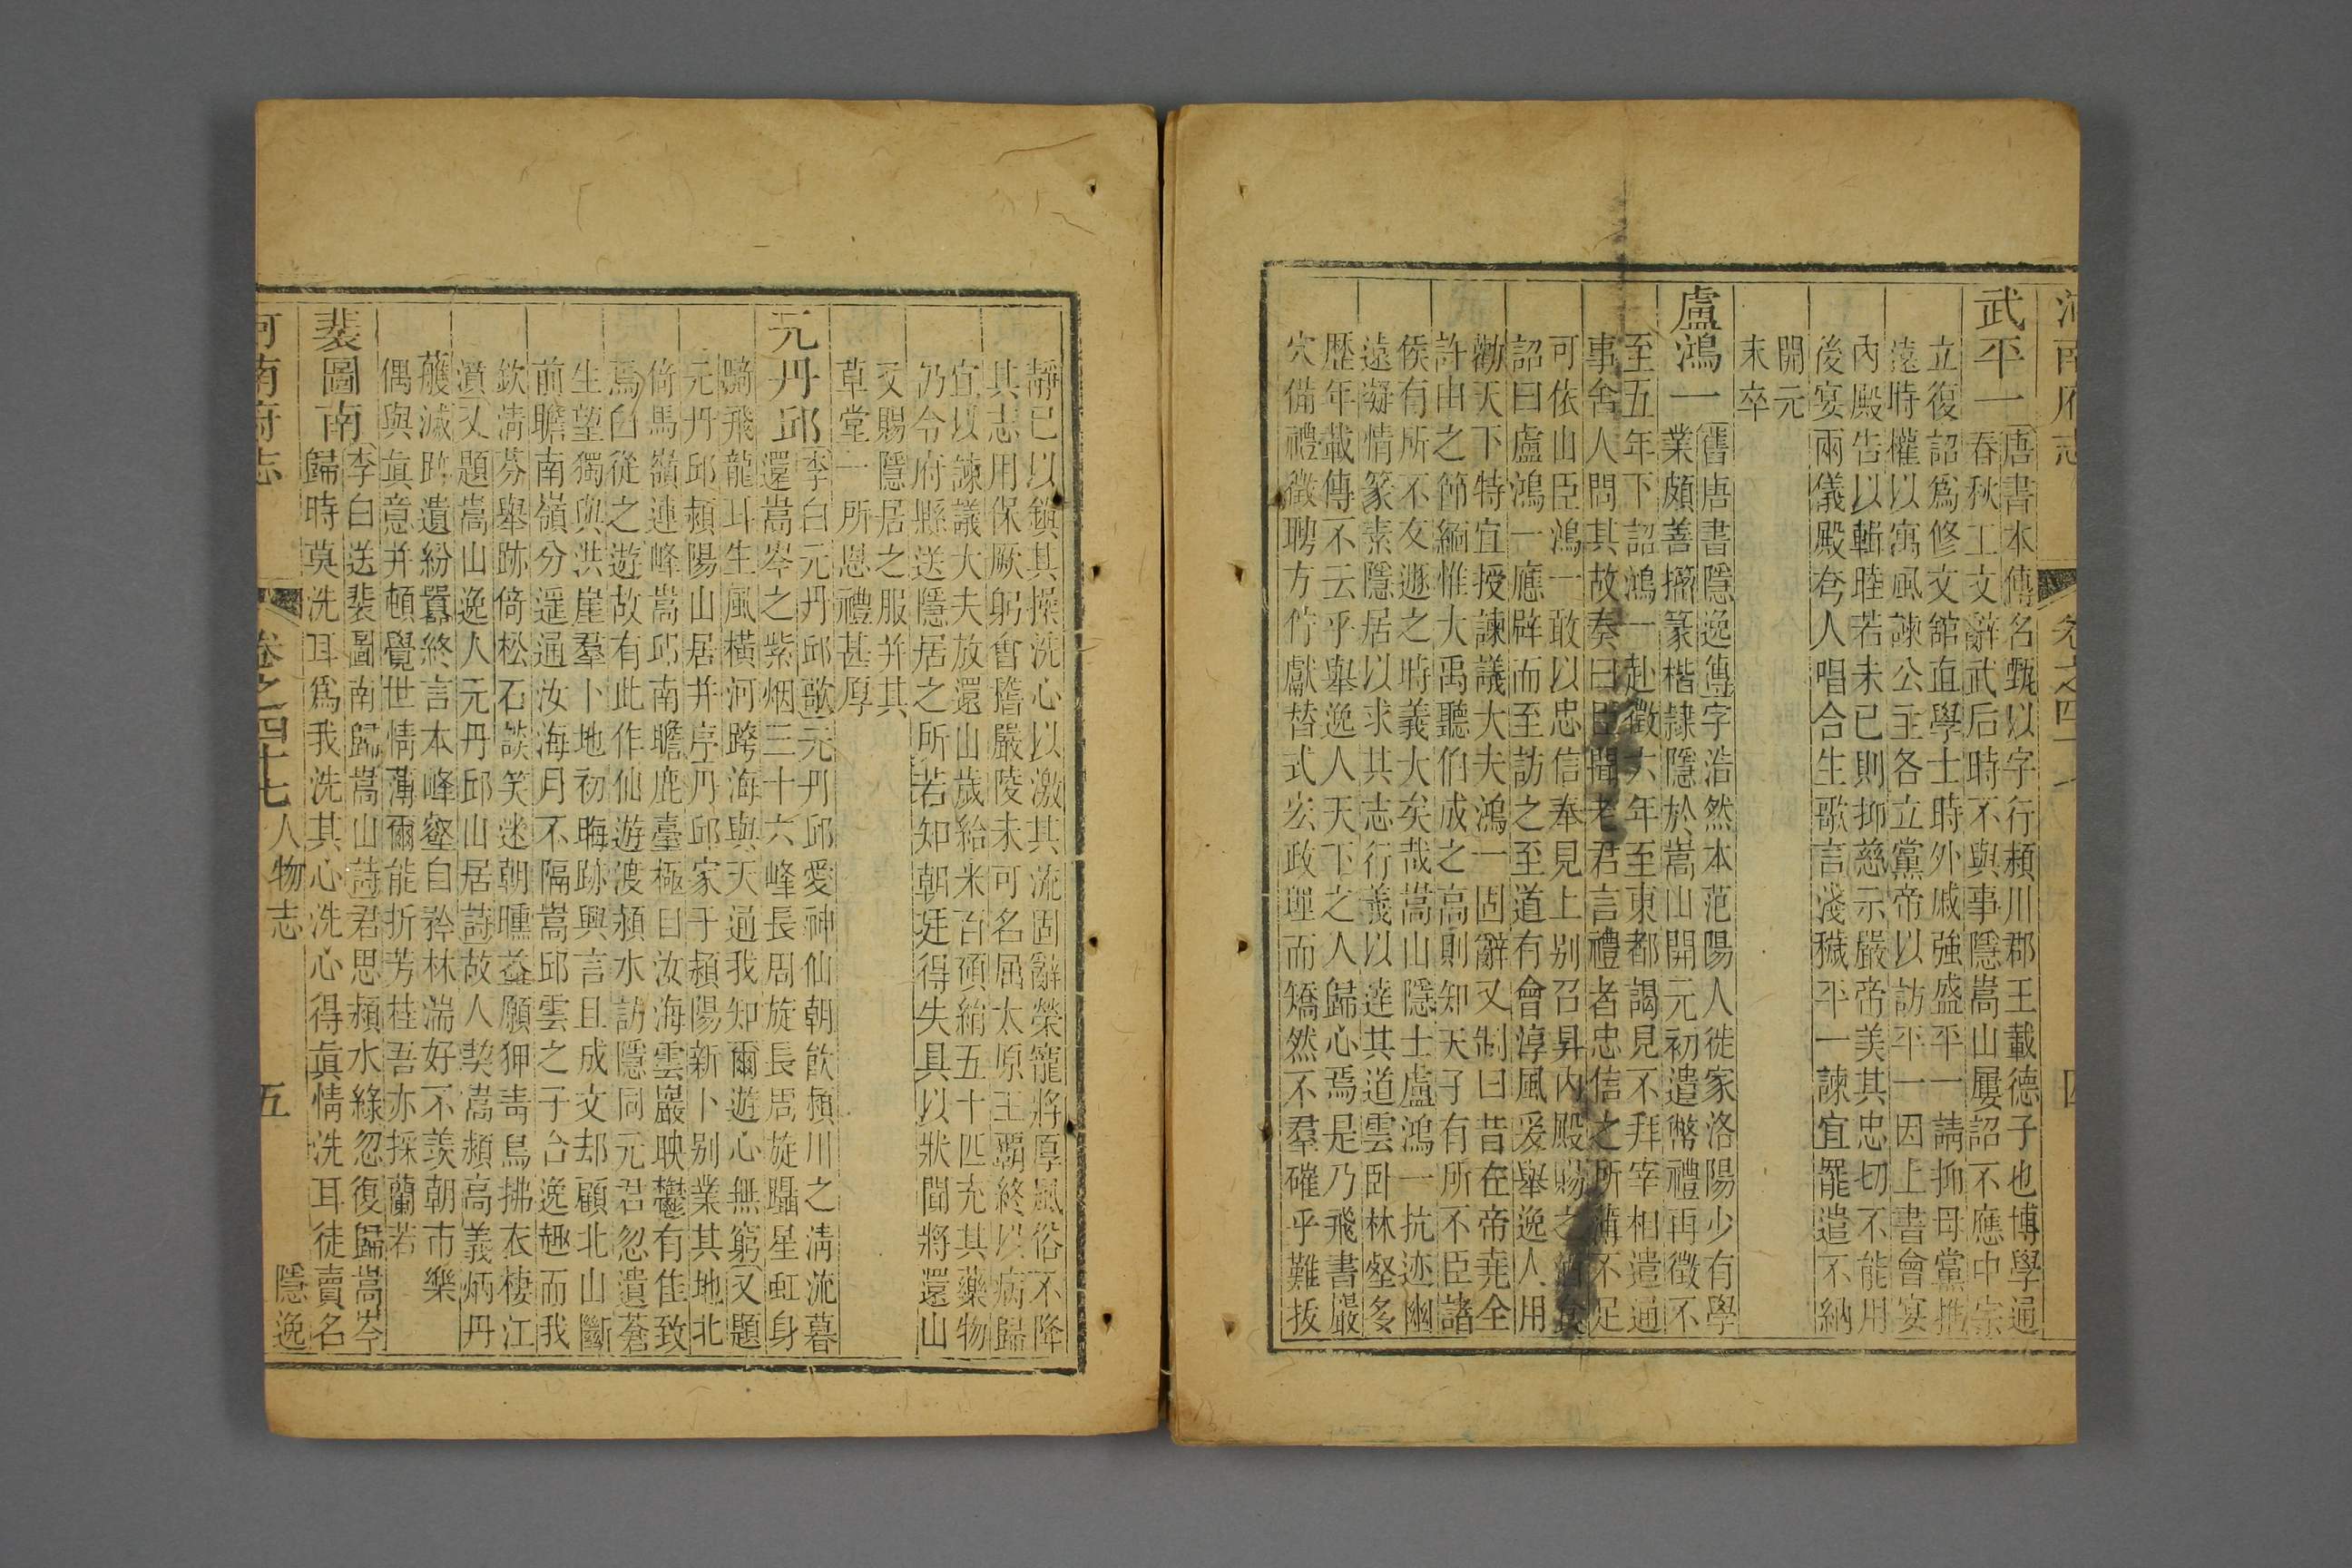 河南府志 卷之四十七 四
武平一
唐書本傳名甄以字行潁川郡王載德子也博學通
春秋工文辭武后時不與事隱嵩山屢詔不應中宗
立復詔爲修文館直學士時外戚強盛平一請抑母黨推
遠時權以寓風諫公主各立黨帝以訪平一因上書會宴
內殿告以輯睦若未已則抑慈示嚴帝美其忠切不能用
後宴兩儀殿夸人唱合生歌言淺穢平一諫宜罷遣不納
開元
末卒
盧鴻一
舊唐書隱逸傳字浩然本范陽人徙家洛陽少有學
業頗善籀篆楷隸隱於嵩山開元初遣幣禮再徵不
至五年下詔鴻一赴徵六年至東都謁見不拜宰相遣通
事舍人問其故奏曰臣聞老君言禮者忠信之所薄不足
可依山臣鴻一敢以忠信奉見上别召昇內殿賜之酒食
詔曰盧鴻一應辟而至訪之至道有會淳風爰舉逸人用
勸天下特宜授諫議大夫鴻一固辭又制曰昔在帝堯全
許由之節緬惟大禹聽伯成之高則知天子有所不臣諸
侯有所不友遯之時義大矣哉嵩山隱士盧鴻一抗迹幽
遠凝情篆素隱居以求其志行義以達其道雲卧林壑多
歷年載傳不云乎舉逸人天下之人歸心焉是乃飛書巖
穴備禮徵聘方佇獻替式宏政理而矯然不羣確乎難拔
靜已以鎮其操洗心以激其流固辭榮寵將厚風俗不降
其志用保厥躬會擔嚴陵未可名屈太原王覇終以病歸
宜以諫議大夫放還山歲給米百碩絹五十匹充其藥物
仍令府縣送隱居之所若知朝廷得失具以狀聞將還山
又賜隱居之服并其
草堂一所恩禮甚厚
元丹邱
李白元丹邱歌元丹邱愛神仙朝飲潁川之淸流暮
還嵩岑之紫烟三十六峰長周旋長周旋躡星虹身
騎飛龍耳生風橫河跨海與天通我知爾遊心無窮又題
元丹邱潁陽山居并序丹邱家于潁陽新卜别業其地北
倚馬嶺連峰嵩邱南瞻鹿臺極目汝海雲巖映鬱有佳致
焉白從之遊故有此作仙遊渡潁水訪隱同元君忽遺蒼
生望獨與洪崖羣卜地初晦跡興言且成文却顧北山斷
前瞻南嶺分遥通汝海月不隔嵩邱雲之子合逸趣而我
欽淸芬舉跡倚松石談笑迷朝曛益願狎靑鳥拂衣棲江
濆又題嵩山逸人元丹邱山居詩故人契嵩潁高義炳丹
雘滅跡遺紛囂終言本峰壑自矜林湍好不羨朝市樂
偶與眞意并頓覺世情薄爾能折芳桂吾亦採蘭若
裴圖南
李白送裴圖南歸嵩山詩君思潁水綠忽復歸嵩岑
歸時莫洗耳爲我洗其心洗心得眞情洗耳徒賣名
河南府志 卷之四十七 人物志 五 隱逸